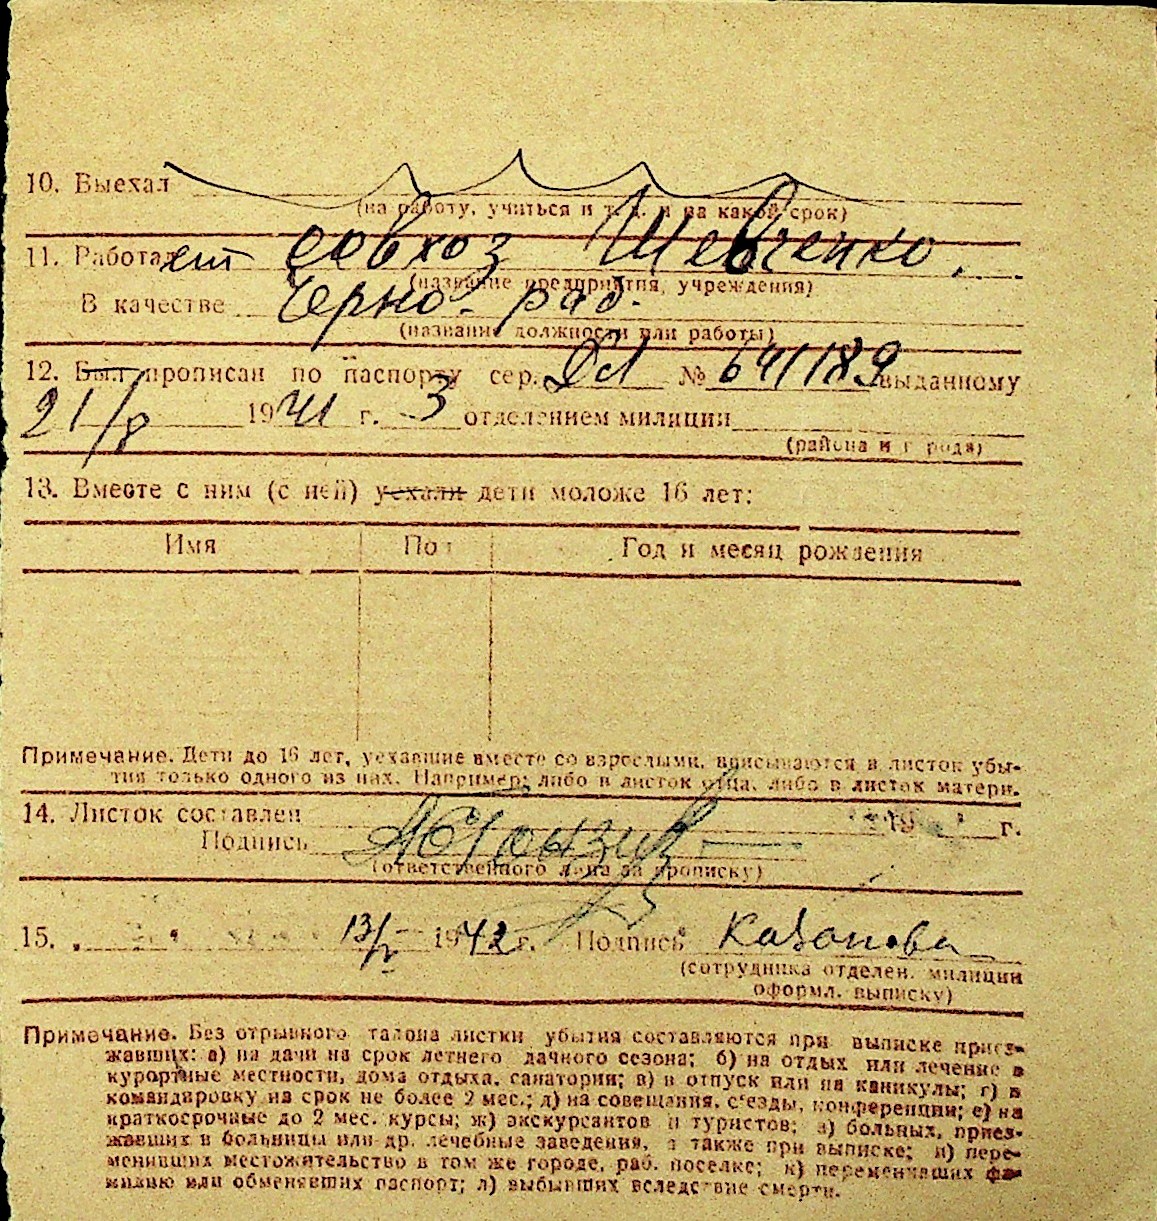 10. Выехал
(на работу, учиться и т. д. и на какой срок)
11. Работает совхоз Шевченко.
(название предприятия, учреждения)
В качестве Черно. раб.
(название должности или работы)
12. Был прописан по паспорту сер. № 641189 выданному
21/8 1941 г. 3 отделением милиции
(района и города)
13. Вместе с ним (с ней) уехали дети моложе 16 лет:
Имя Пол Год и месяц рождения
Примечание. Дети до 16 лет, уехавшие вместе со взрослыми, вписываются в листок убы-
тия только одного из них. Например: либо в листок отца, либо в листок матери.
14. Листок составлен 19 г.
Подпись
(ответственного лица за прописку)
15. 13/V 1942 г. Подпись Казакова
(сотрудника отделен. милиции
оформл. выписку)
Примечание. Без отрывного талона листки убытия составляются при выписке приез-
жавших: а) на дачи на срок летнего дачного сезона; б) на отдых или лечение в
курортные местности, дома отдыха, санатории; в) в отпуск или на каникулы; г) в
командировку на срок не более 2 мес.; д) на совещания, съезды, конференции; е) на
краткосрочные до 2 мес. курсы; ж) экскурсантов и туристов; з) больных, приез-
жавших в больницы или др. лечебные заведения, а также при выписке; и) пере-
менивших местожительство в том же городе, раб. поселке; к) переменивших фа-
милию или обменявших паспорт; л) выбывших вследствие смерти.